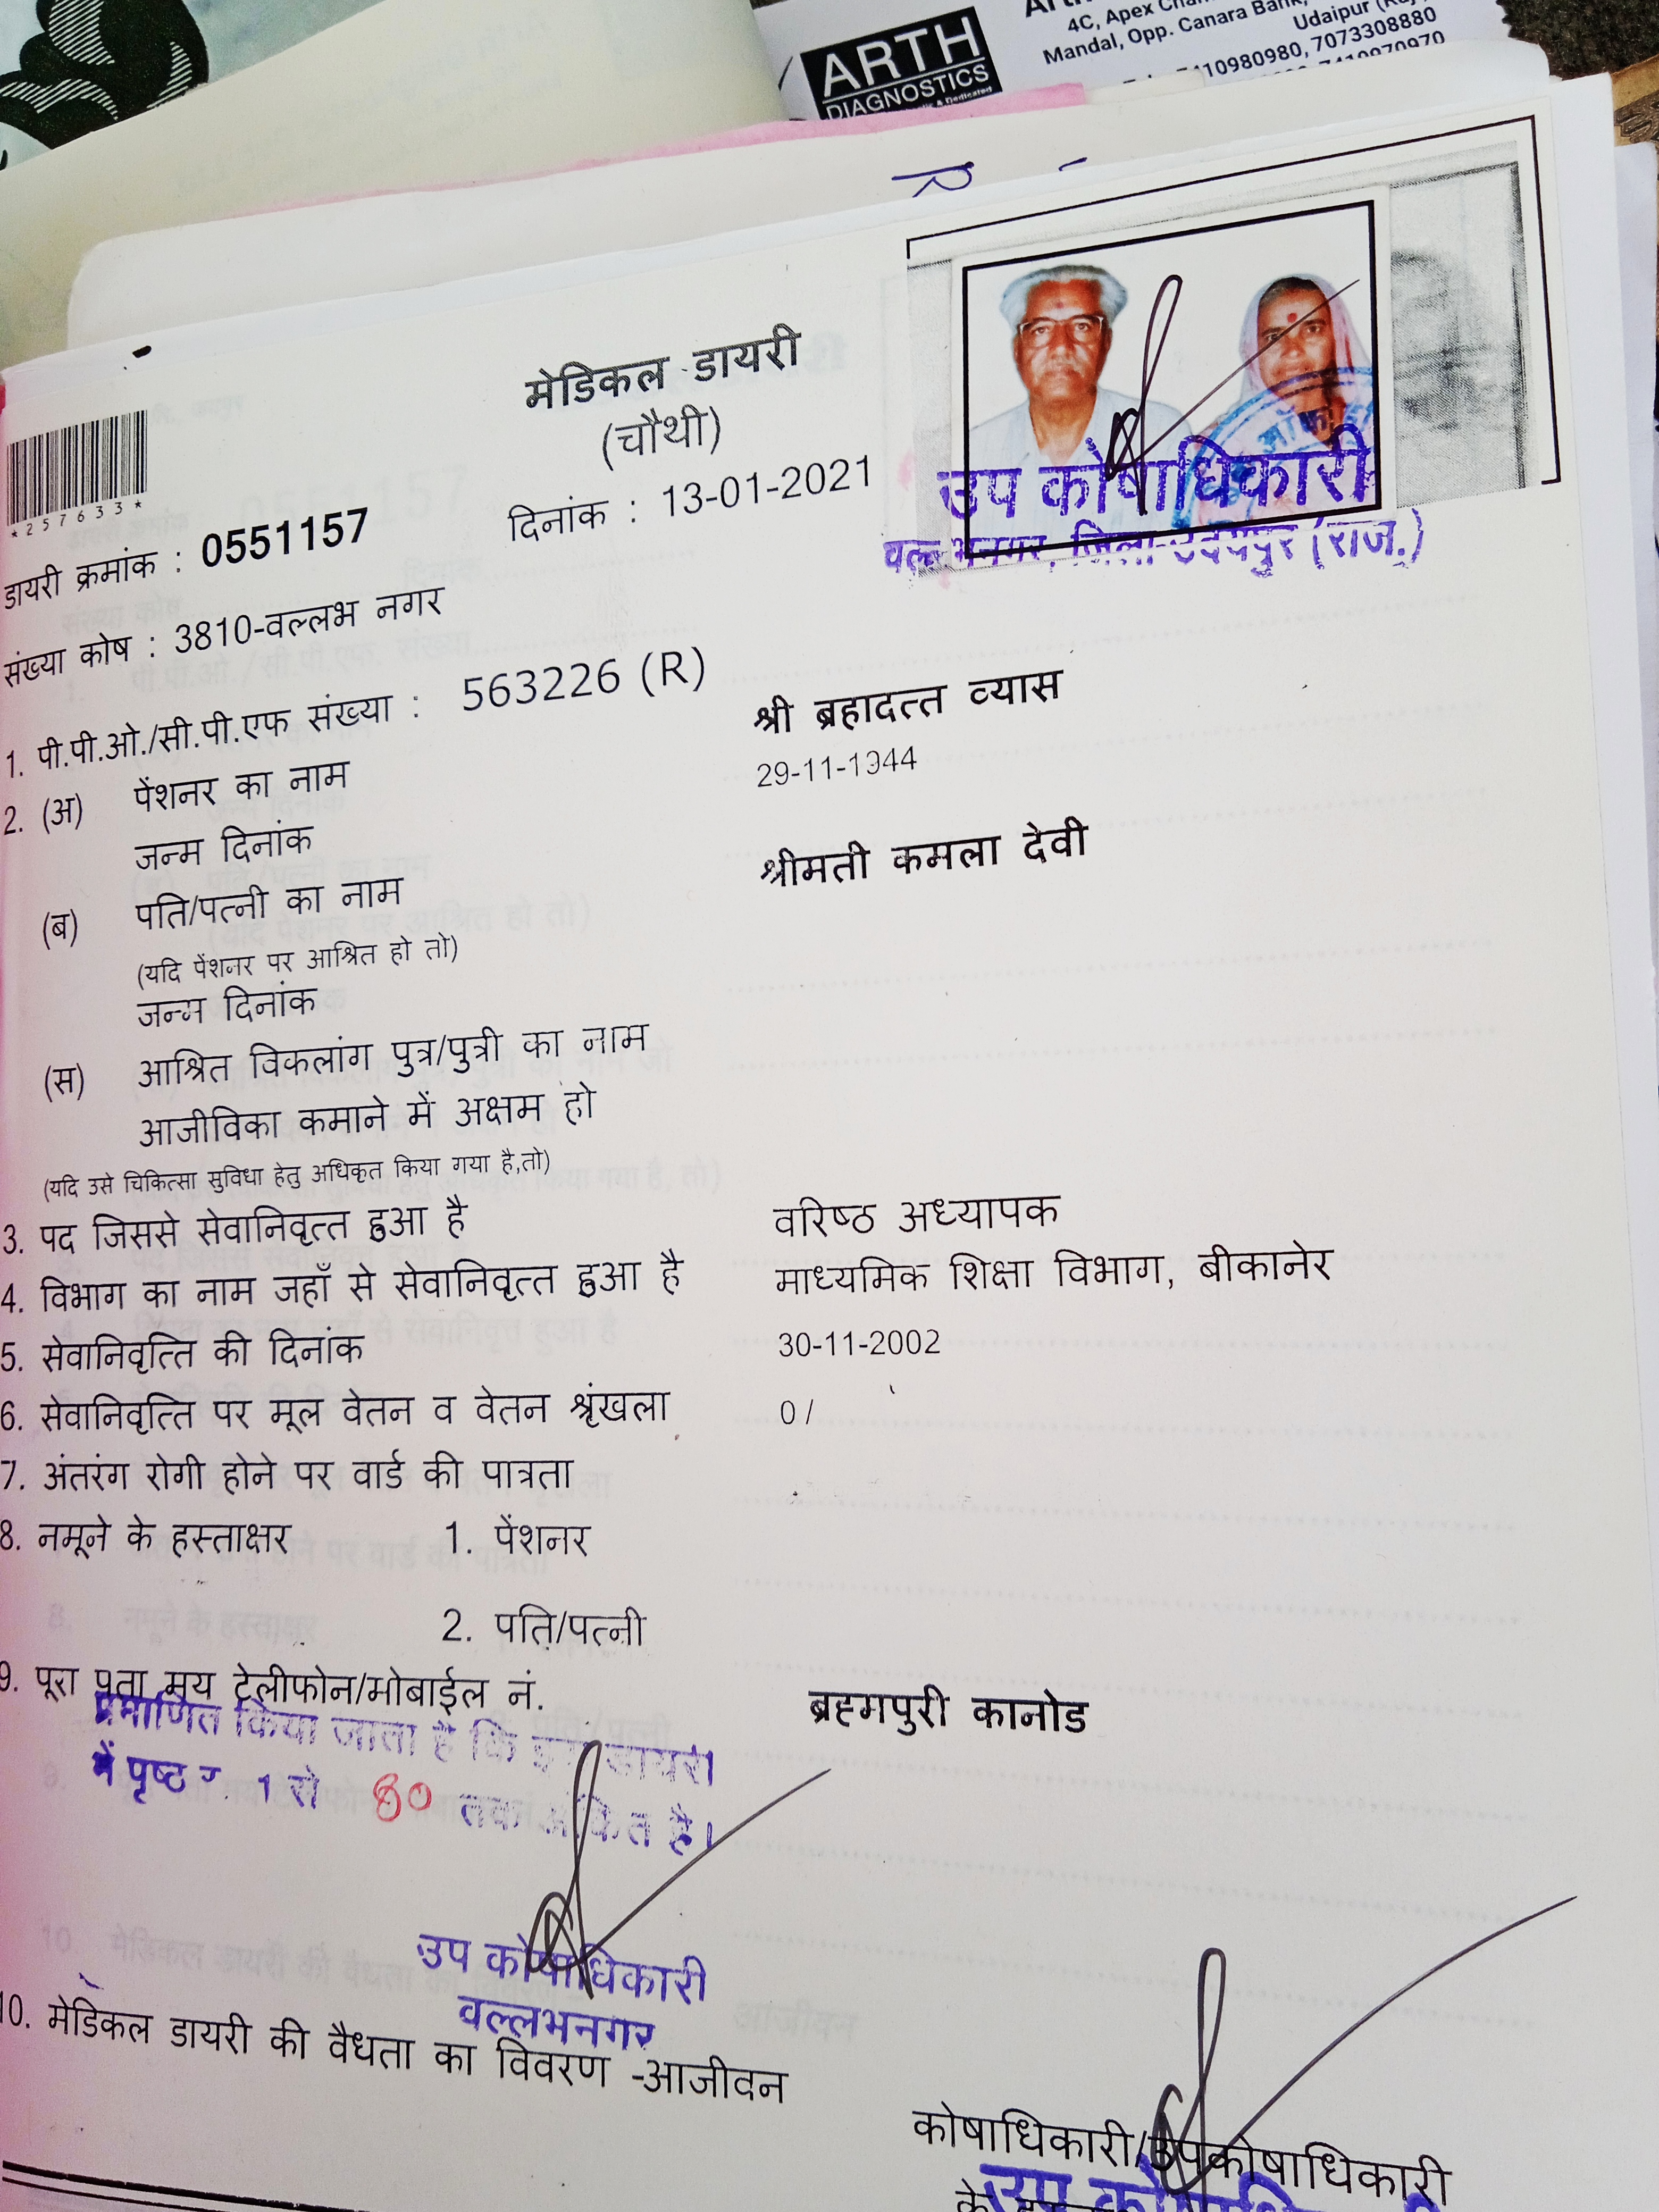 ARTH
DIAGNOSTICS
4C, Apex
Mandal, Opp. Canara Bank,
Udaipur
10980980, 7073308880
मेडिकल डायरी
(चौथी)
दिनांक : 13-01-2021
*257633*
उप कोषाधिकारी
वल्लभनगर, जिला-उदयपुर (राज.)
डायरी क्रमांक : 0551157
संख्या कोष : 3810-वल्लभ नगर
1. पी.पी.ओ./सी.पी.एफ संख्या : 563226 (R)
2. (अ) पेंशनर का नाम श्री ब्रहादत्त व्यास
जन्म दिनांक 29-11-1944
(ब) पति/पत्नी का नाम श्रीमती कमला देवी
(यदि पेंशनर पर आश्रित हो तो)
जन्म दिनांक
(स) आश्रित विकलांग पुत्र/पुत्री का नाम
आजीविका कमाने में अक्षम हो
(यदि उसे चिकित्सा सुविधा हेतु अधिकृत किया गया है,तो)
3. पद जिससे सेवानिवृत्त हुआ है वरिष्ठ अध्यापक
4. विभाग का नाम जहाँ से सेवानिवृत्त हुआ है माध्यमिक शिक्षा विभाग, बीकानेर
5. सेवानिवृत्ति की दिनांक 30-11-2002
6. सेवानिवृत्ति पर मूल वेतन व वेतन श्रृंखला 0 /
7. अंतरंग रोगी होने पर वार्ड की पात्रता
8. नमूने के हस्ताक्षर 1. पेंशनर
2. पति/पत्नी
9. पूरा पता मय टेलीफोन/मोबाईल नं. ब्रह्मपुरी कानोड
प्रमाणित किया जाता है कि इस डायरी
में पृष्ठ 1 से 80 तक अंकित है।
उप कोषाधिकारी
वल्लभनगर
10. मेडिकल डायरी की वैधता का विवरण -आजीवन
कोषाधिकारी/उपकोषाधिकारी
के
उप कोषाधिकारी